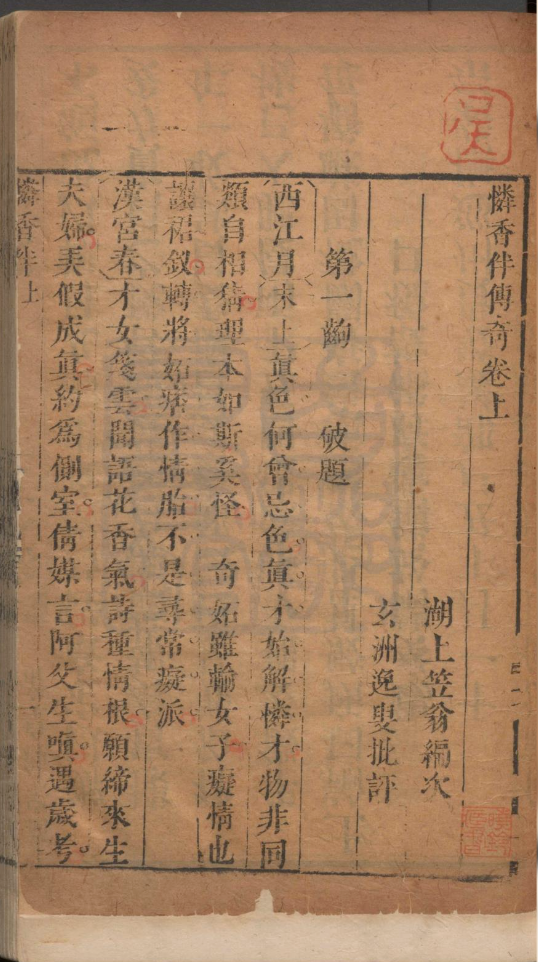 憐香伴傳奇卷上
湖上笠翁編次
玄洲逸叟批評
第一齣 破題
西江月末上真色何曾忌色真才始解憐才物非同
類自相猜理本如斯奚怪 奇妬雖輸女子癡情也
讓裙釵轉將妬痞作情胎不是尋常癡派
漢宮春才女箋雲聞語花香氣詩種情根願締來生
夫婦弄假成真約爲側室倩媒言阿父生嗔遇歲考
憐香伴上
一